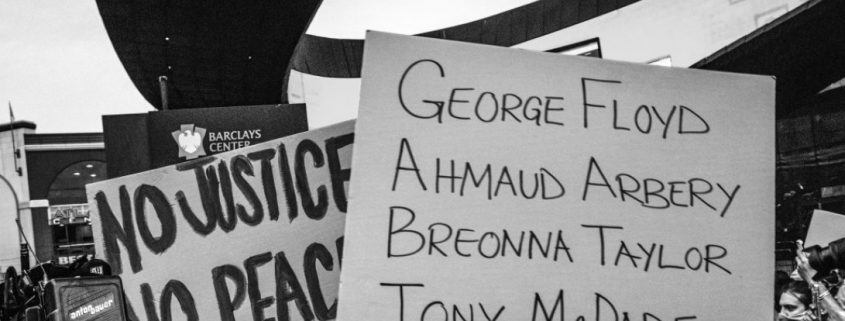 BARCLAYS
CENTER
NO JUSTICE
NO PEAC
GEORGE FLOYD
AHMAUD ARBERY
BREONNA TAYLOR
TONY McDADE
anton bauer